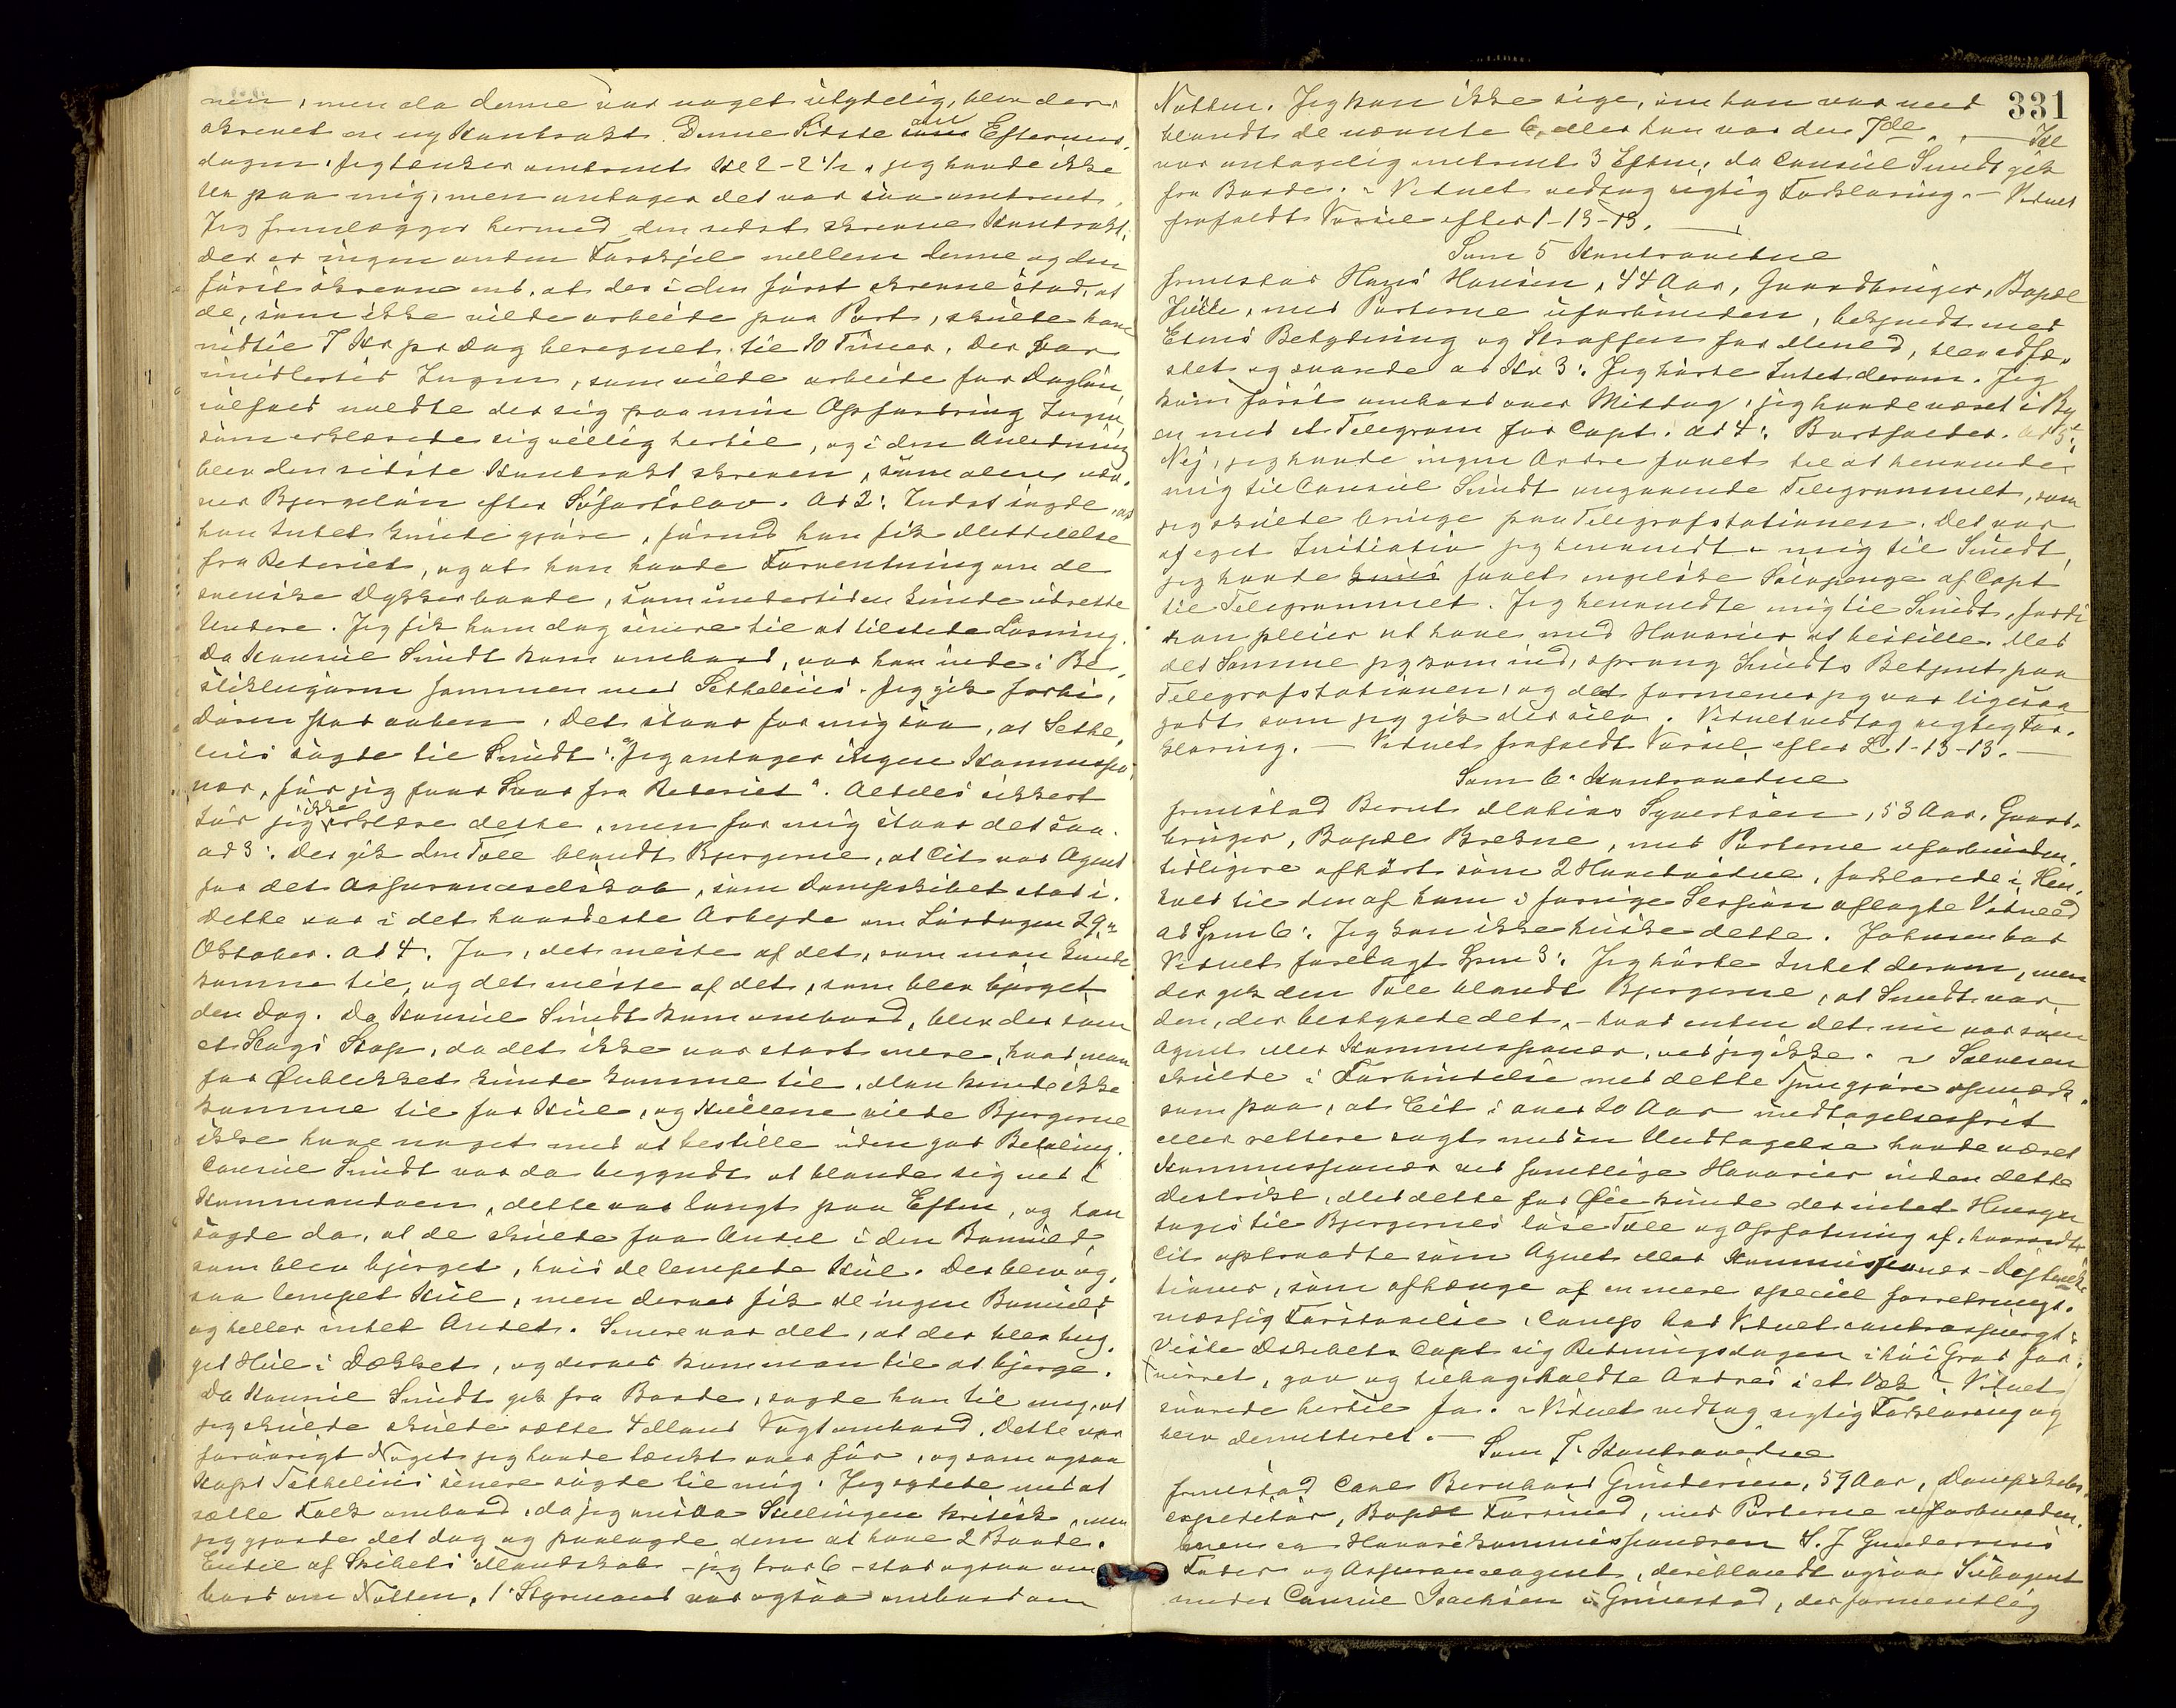 nen, men da denne var noget utydelig, blev der
skrevet en ny Kontrakt. Denne Sidste om Eftermid-
dagen, jeg tænker omtrent Kl 2-2½, jeg havde ikke
Ur paa mig, men antager det var saa omtrent.
Jeg fremlægger hermed den sidst skrevne Kontrakt;
der er ingen anden Forskjel mellem denne og den
först skrevne end, at der i den först skrevne stod, at
de, som ikke vilde arbeide paa Part, skulde have
indtil 7 Kr pr Dag beregnet til 10 Timer. Der var
imidlertid Ingen, som vilde arbeide for Daglön,
ialfald meldte der sig paa min Opfordring Ingen,
som erklærede sig villig hertil, og i den Anledning
blev den sidste Kontrakt skreven, som alene
Bjergelön efter Söfartslov. Ad 2: Indst sagde, at
han Intet kunde gjöre, förend han fik Meddelelse
fra Rederiet, og at han havde Forventning om de
svenske Dykkerbaade, som undertiden kunde udrette
Undere. Jeg fik ham dog senere til at tilstede Losning.
Da Konsul Smidt kom ombord, var han inde i Be-
stiklugaren sammen med Sethelius. Jeg gik forbi,
Dören stod aaben. Det staar for mig saa, at Sethe-
lius sagde til Smidt: "Jeg antager ingen Kommissio-
nær, för jeg faar Svar fra Rederiet". Aldeles sikkert
tör jeg ikke erklære dette, men for mig staar det saa.
ad 3: Der gik den Tale blandt Bjergerne, at Cit var Agent
for det Assuranceselskab, som Dampskibet stod i.
Dette var i det haardeste Arbejde om Lördagen 29.
Oktober. Ad 4. Ja, det meste af det, som man kunde
komme til, og det meste af det, som blev bjerget
den Dag. Da Konsul Smidt kom ombord, blev der som
et Slags Stop, da det ikke var stort mere, hvad man
for Öieblikket kunde komme til. Man kunde ikke
komme til for Kul, og Kullene vilde Bjergerne
ikke have noget med at bestille uden god Betaling.
Consul Smidt var da begyndt at blande sig ned i
Kommandoen, dette var langt paa Eftm, og han
sagde da, at de skulde faa Andel i den Bomuld,
som blev bjerget, hvis de lempede Kul. Der blev og-
saa lempet Kul, men derved fik de ingen Bomuld
og heller intet Andet. Senere var det, at der blev hug-
get Hul i Dækket, og derved kom man til at bjerge.
Da Konsul Smidt gik fra Borde, sagde han til mig, at
jeg skulde skulde sætte 4 Mand Vagt ombord. Dette var
forövrigt Noget jeg havde tænkt over för, og som ogsaa
Kapt Sethelius senere sagde til mig. Jeg nedat
sætte Folk ombord, da jeg ansaa Stillingen kritisk, men
jeg gjorde det dog og paalagde dem at have 2 Baade.
Endel af Skibets Mandskab - jeg tror 6 - stod ogsaa om-
bord om Natten. 1' Styrmand var ogsaa ombord om
331
Natten. Jeg kan ikke sige, om han var med
blandt de nævnte 6, eller han var den 7de. — Kl
var antagelig omtrent 3 Eftm, da Consul Smidt gik
fra Borde. Vidnet vedtog rigtig Forklaring. — Vidnet
frafaldt Varsel efter 1-13-13. —
Som 5 Kontravidne
fremstod Hans Hansen, 44 Aar, Gaardbruger, Bopæl
, med Parterne uforbunden, bekjendt med
Edens Betydning og Straffen for Mened, blev edfæ-
stet og svarede ad Kv 3: Jeg hörte Intet derom. Jeg
kom först ombord over Middag, jeg havde været i By-
en med et Telegram for Capt. Ad 4: Bortfalder. Ad 5:
Nej, jeg havde ingen Ordre faaet til at henvende
mig til Consul Smidt angaaende Telegrammet, som
jeg skulde bringe paa Telegrafstationen. Det var
af eget Initiativ jeg henvendte mig til Smidt,
jeg havde faaet engelske Sölvpenge af Capt
til Telegrammet. Jeg henvendte mig til Smidt, fordi
han pleier at have med Havarier at bestille. Med
det Samme jeg kom ind, sprang Smidts Betjent paa
Telegrafstationen, og det formener jeg var ligesaa
godt som jeg gik der selv. Vidnet vedtog rigtig For-
klaring. — Vidnet frafaldt Varsel efter L. 1-13-13. —
Som 6' Kontravidne
fremstod Bernt Mathias Syvertsen, 53 Aar, Gaard-
bruger, Bopæl Brekne, med Parterne uforbunden,
tidligere afhört som 2 Hovedvidne, forklarede i Hen-
hold til den af ham i forrige Session aflagte Vidneed
ad Spm 6: Jeg kan ikke huske dette. Johnsen bad
Vidnet forelagt Spm 3: Jeg hörte Intet derom, men
der gik den Tale blandt Bjergerne, at Smidt var
den, der bestyrede det, - hvad enten det nu var som
Agent eller Kommissionær, ved jeg ikke. Salvesen
skulde i Forbindelse med dette Spm gjöre opmærk-
som paa, at Cit i over 20 Aar undtagelsesfrit
eller rettere sagt med en Undtagelse havde været
Kommissionær ved samtlige Havarier inden dette
Distrikt. Med dette for Öie kunde der intet Hensyn
tages til Bjergernes löse Tale og Opfatning af, hvorvidt
Cit optraadte som Agent eller Kommissionær -
, som afhænge af en mere speciel forretnings-
mæssig Forstaaelse. Comp bad Vidnet contraspurgt:
Viste Dskibets Capt sig Retningsdagen i höi Grad for-
virret, gav og tilbagekaldte Ordres i et Væk? Vidnet
svarede hertil Ja. Vidnet vedtog rigtig Forklaring og
blev demitteret. —
Som 7' Kontravidne
fremstod Carl Bernhard Gundersen, 59 Aar, Dampskibs-
expeditör, Bopæl Farsund, med Parterne uforbunden,
men er Havarikommissionæren S. J Gundersens
Fader og Assuranceagent, deriblandt ogsaa Subagent
under Consul Isachsen i Grimestad, der formentlig